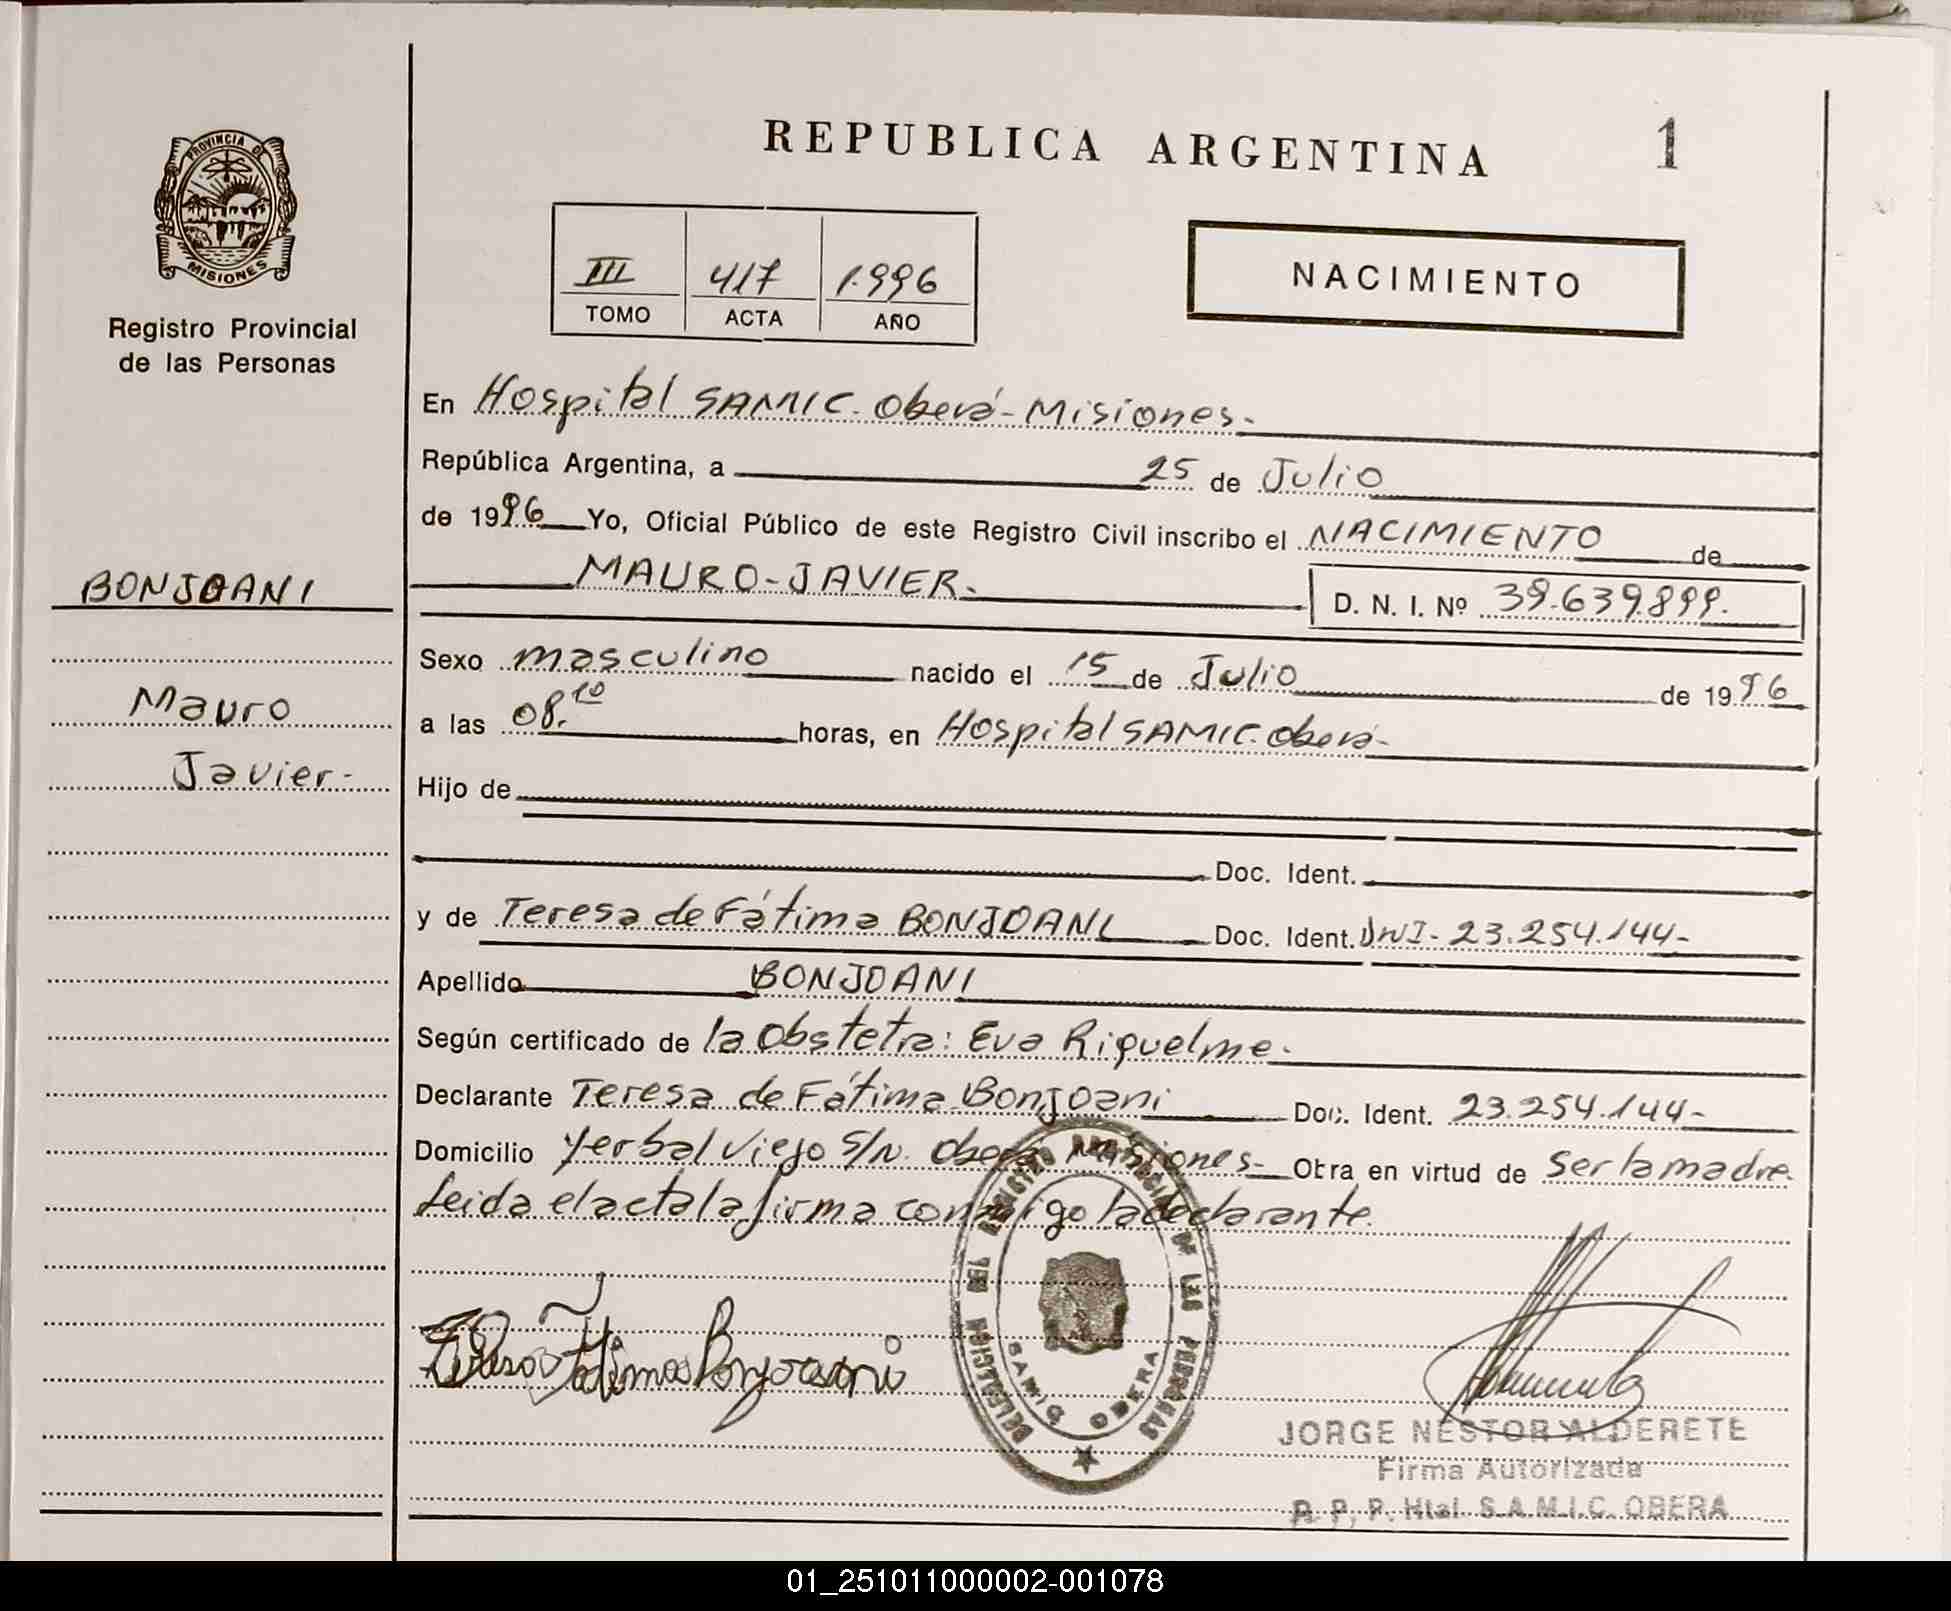 REPUBLICA ARGENTINA
1
PROVINCIA DE
MISIONES
Registro Provincial
de las Personas
III 417 1.996
TOMO ACTA AÑO
NACIMIENTO
En Hospital SAMIC. Oberá - Misiones.-
República Argentina, a 25 de Julio
de 1996 Yo, Oficial Público de este Registro Civil inscribo el NACIMIENTO de
BONJOANI
MAURO - JAVIER.
D. N. I. Nº 39.639.899.
Sexo masculino nacido el 15 de Julio de 1996
Mauro
Javier-
a las 08.10 horas, en Hospital SAMIC. Oberá-
Hijo de
Doc. Ident.
y de Teresa de Fátima BONJOANI Doc. Ident. DNI- 23.254.144-
Apellido BONJOANI
Según certificado de la Obstetra: Eva Riquelme.
Declarante Teresa de Fátima Bonjoani Doc. Ident. 23.254.144-
Domicilio Yerbal Viejo S/N. Oberá Misiones- Obra en virtud de ser la madre.
Leida el acta la firma conmigo la declarante.
DELEGACION DEL REGISTRO PROVINCIAL DE LAS PERSONAS
SAMIC OBERA
JORGE NESTOR ALDERETE
Firma Autorizada
R. P. P. Htal. S.A.M.I.C. OBERA
01_251011000002-001078